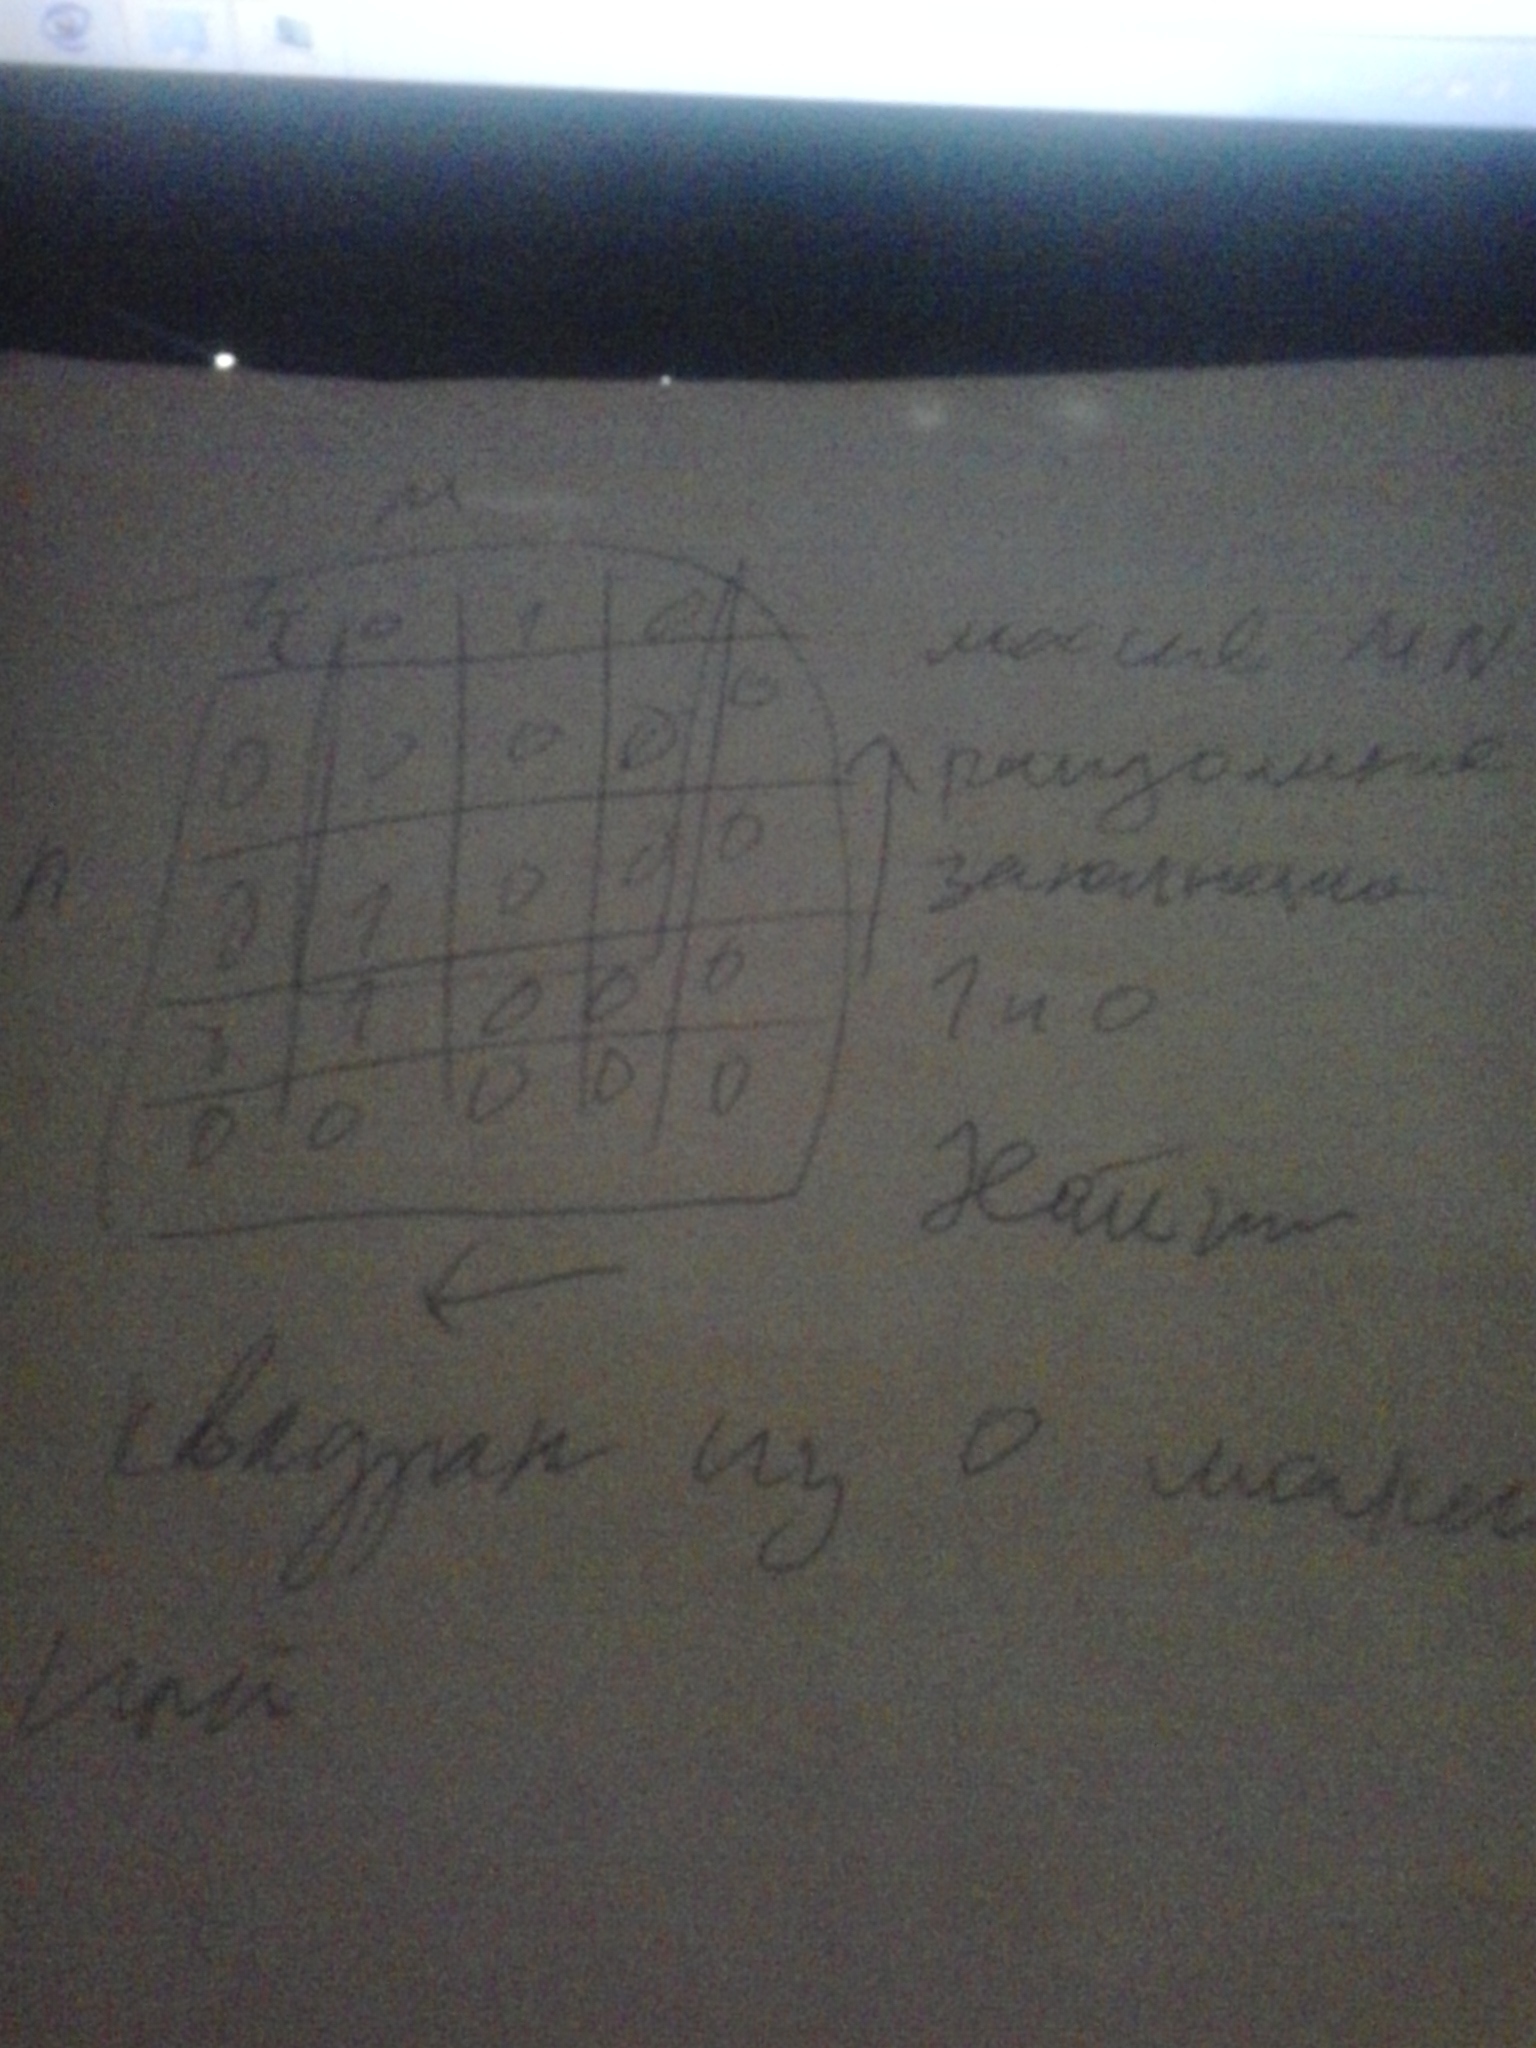 M
1 0 1 0
0 0 0 0 0
n
0 1 0 0 0
1 0 0 0
0 0 0 0 0
масив MN
рандомно
заполнено
1 и 0
Найти
квадрат из 0